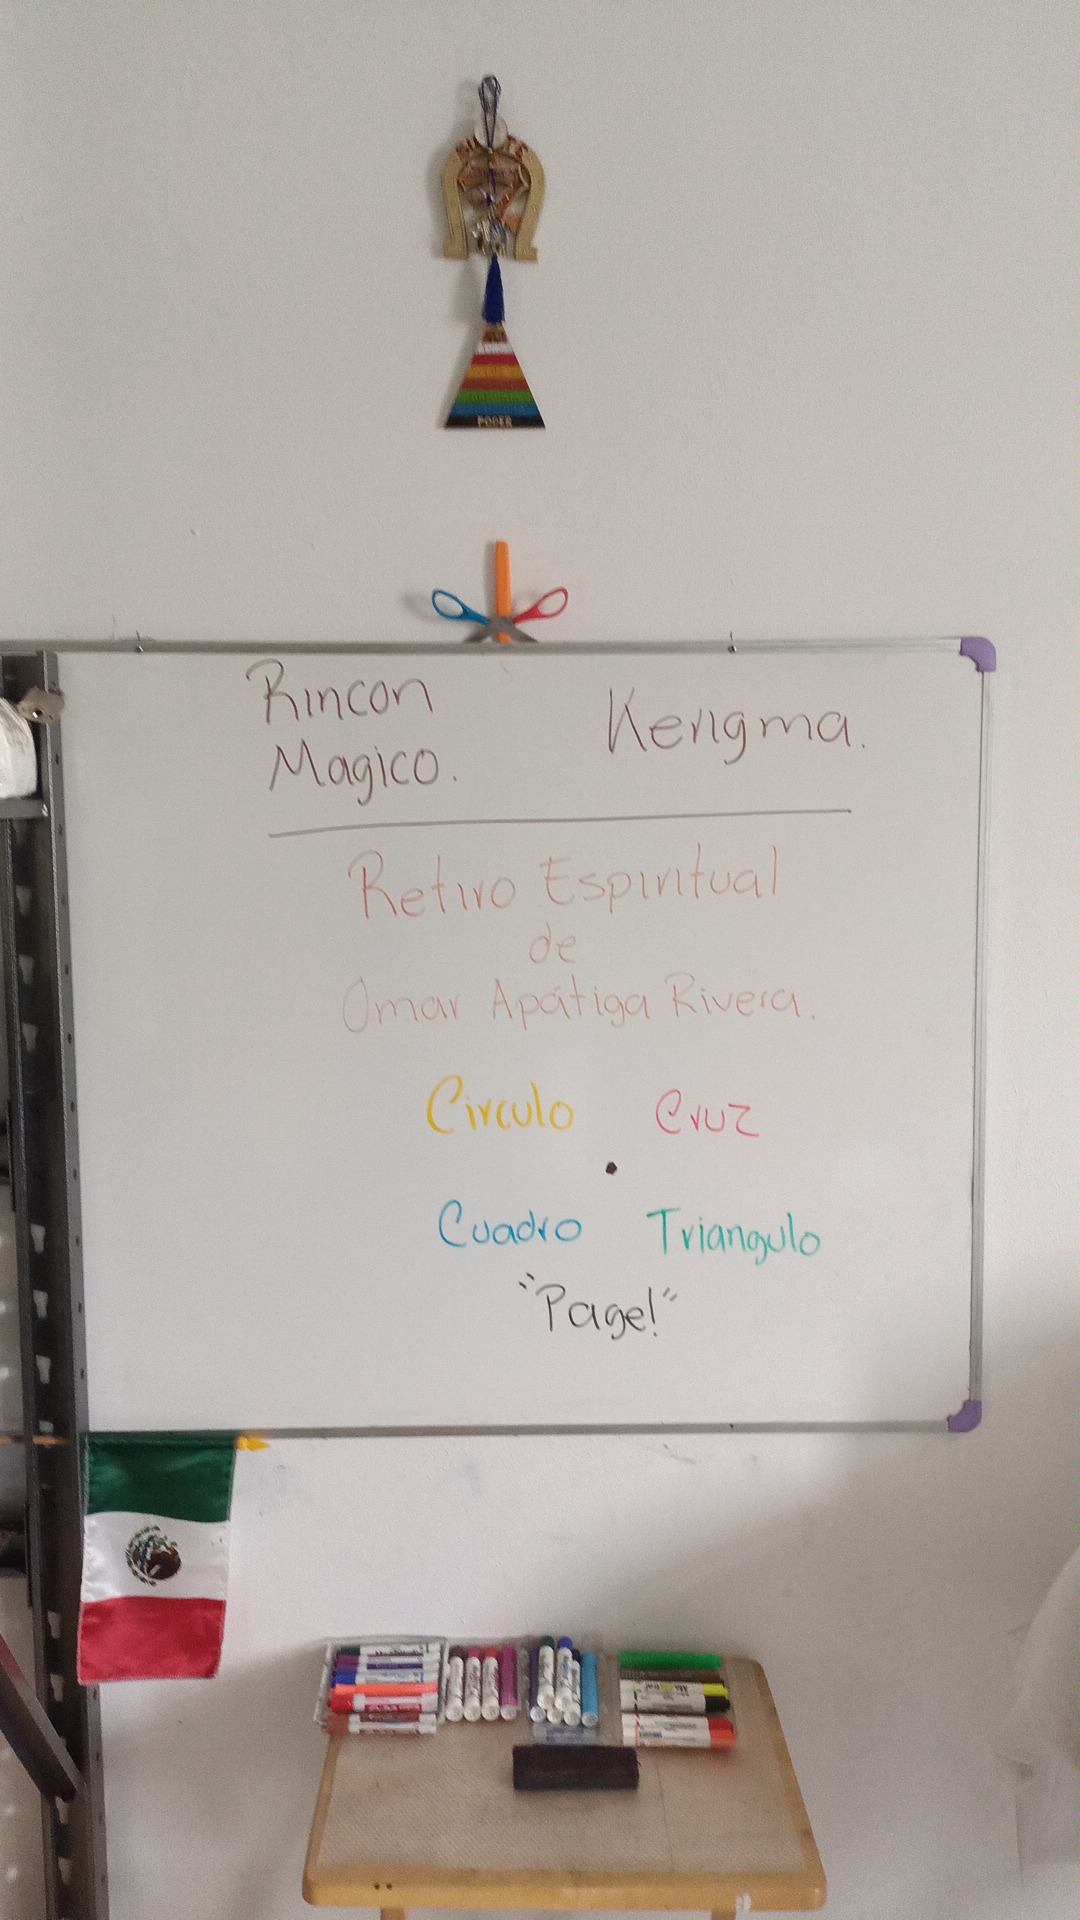 PODER
Rincon
Magico.
Kerigma.
Retiro Espiritual
de
Omar Apátiga Rivera.
Circulo Cruz
Cuadro Triangulo
"Page!"